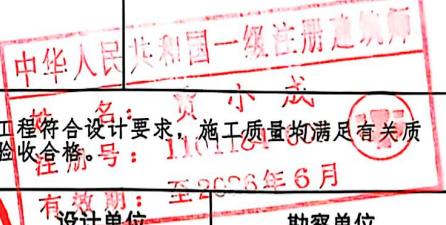 中华人民共和国一级注册建筑师
姓 名：贾小成
工程符合设计要求，施工质量均满足有关质
验收合格。
注册号：
有效期：至2026年6月
设计单位 勘察单位